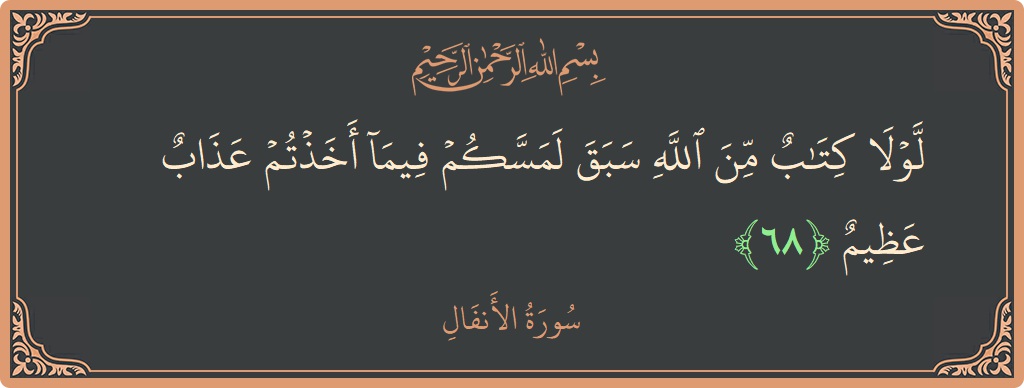 بِسْمِ اللهِ الرَّحْمٰنِ الرَّحِيْمِ
لَّوۡلَا كِتَٰبٌ مِّنَ ٱللَّهِ سَبَقَ لَمَسَّكُمۡ فِيمَآ أَخَذۡتُمۡ عَذَابٌ
عَظِيمٌ ﴿٦٨﴾
سُورَةُ الأَنفَالِ